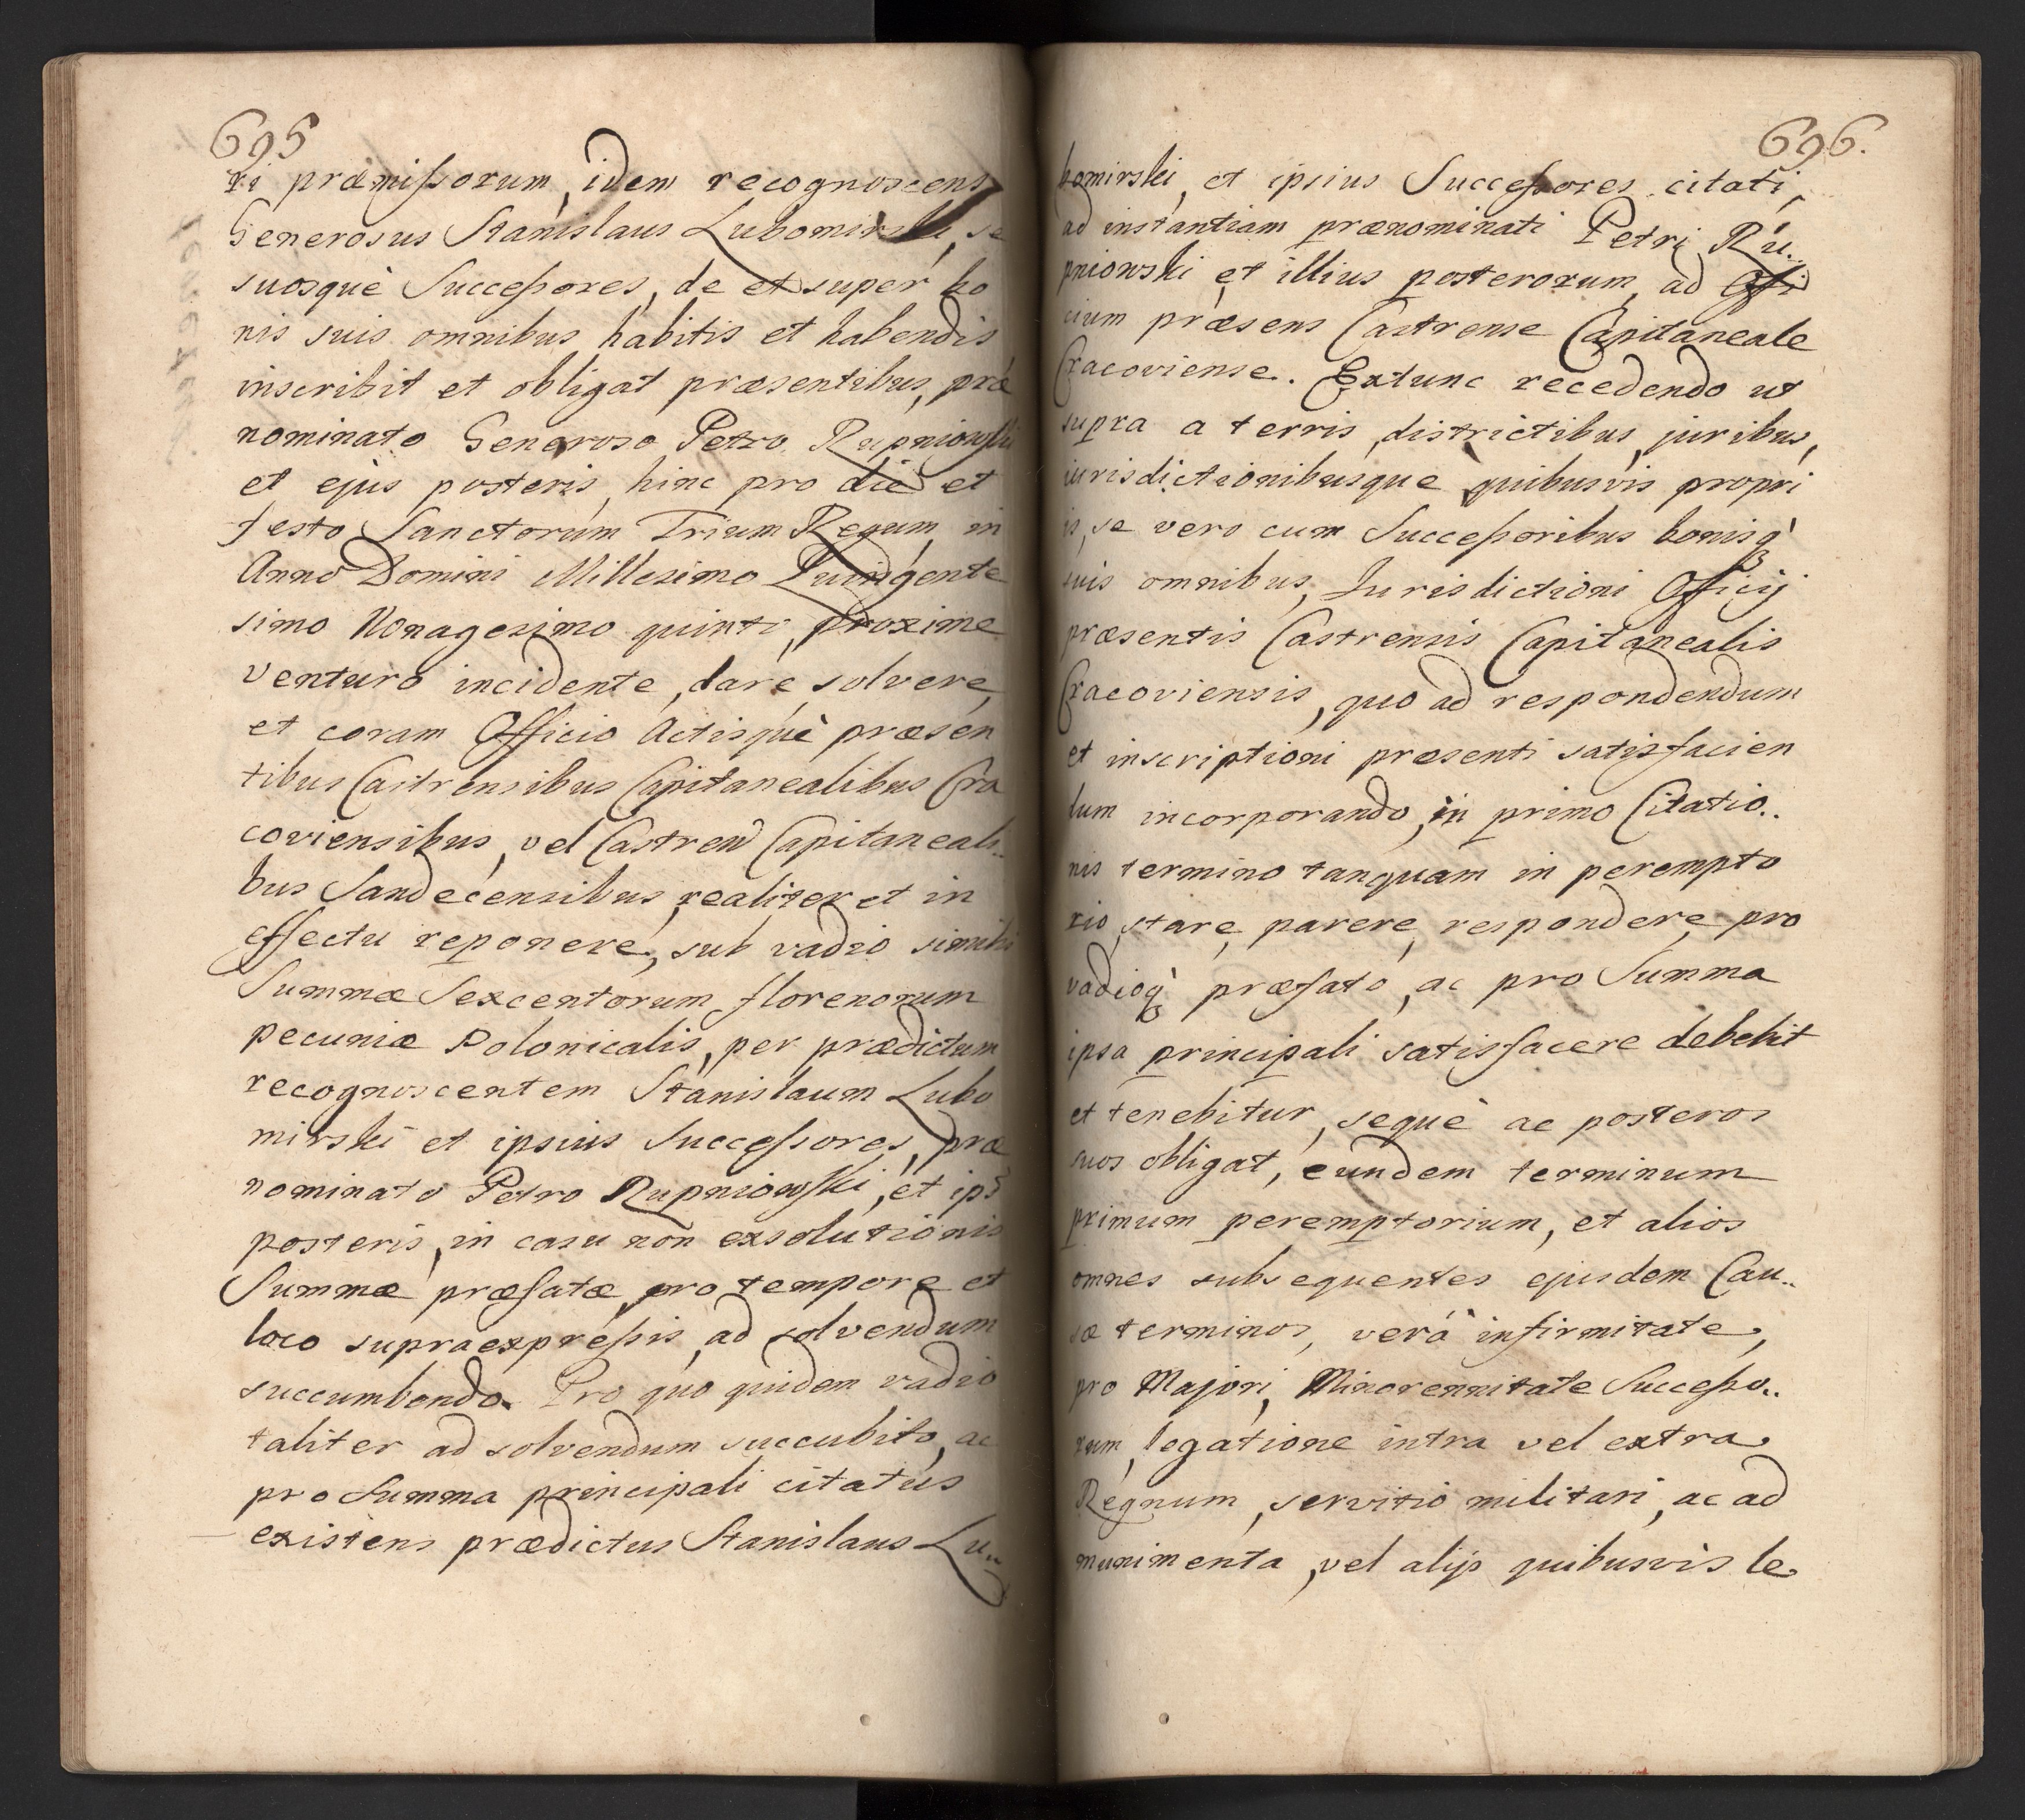 695
ri præmissorum, idem recognoscens
Generosus Stanislaus Lubomirski, se
suosquè Successores, de et super bo
nis suis omnibus habitis et habendis
inscribit et obligat præsentibus, præ
nominato Generoso Petro Rupniowski
et ejus posteris, hinc pro die et
festo Sanctorum Trium Regum, in
Anno Domini Millesimo Quingente
simo Nonagesimo quinto, proxime
venturo incidente, dare, solvere,
et coram Officio Actisquè præsen
tibus Castrensibus Capitanealibus Cra
coviensibus, vel Castren Capitaneali..
bus Sandecensibus, realiter et in
effectu reponere, sub vadio simili
Summæ Sexcentorum florenorum
pecuniæ Polonicalis, per prædictum
recognoscentem Stanislaum Lubo
mirski et ipsius Successores, præ
nominato Petro Rupniowski, et ips
posteris, in casu non exsolutionis
Summæ præfatæ, pro tempore et
loco supraexpressis, ad solvendum
succumbendo. Pro quo quidem vadio
taliter ad solvendum succubito, ac
pro Summa principali citatus
existens prædictus Stanislaus Lu..
696.
bomirski, et ipsius Successores citati,
ad instantiam prænominati Petri Ru..
pniowski et illius posterorum, ad Offi
cium præsens Castrense Capitaneale
Cracoviense. Extunc recedendo ut
supra a terris, districtibus, juribus,
iurisdictionibusque quibusvis propri
is, se vero cum Successoribus bonisq̀
suis omnibus, Jurisdictioni Officij
præsentis Castrensis Capitanealis
Cracoviensis, quo ad respondendum
et inscriptioni præsenti satisfacien
dum incorporando, in primo Citatio..
nis termino tanquam in perempto
rio, stare, parere, respondere, pro
vadioq̀ præfato, ac pro Summa
ipsa principali satisfacere debebit
et tenebitur, sequè ac posteros
suos obligat, eundem terminum
primum peremptorium, et alios
omnes subsequentes ejusdem Cau..
sæ terminos, verâ infirmitate,
pro Majori, Minorennitate Successo..
rum, legatione intra vel extra
Regnum, servitio militari, ac ad
munimenta, vel alijs quibusvis le